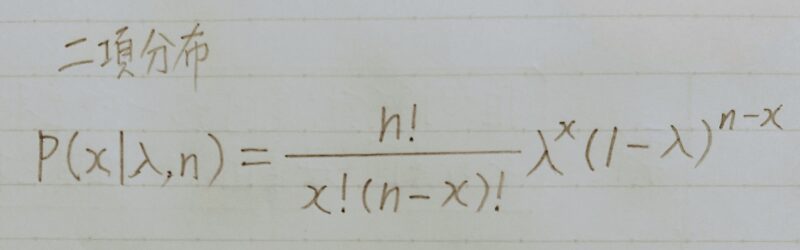 二項分布
P(x|λ,n) = \frac{n!}{x!(n-x)!} λ^x (1-λ)^{n-x}